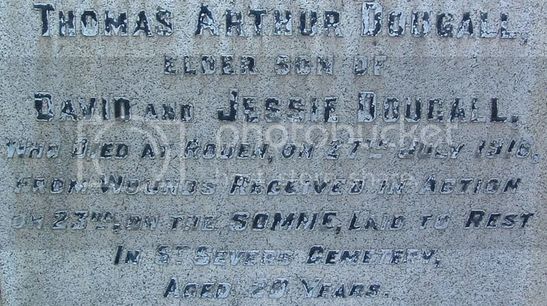 THOMAS ARTHUR DOUGALL,
ELDER SON OF
DAVID AND JESSIE DOUGALL,
WHO DIED AT ROUEN, ON 27TH JULY 1916,
FROM WOUNDS RECEIVED IN ACTION
ON 23RD, ON THE SOMME, LAID TO REST
IN ST SEVERS CEMETERY,
AGED 20 YEARS.
photobucket